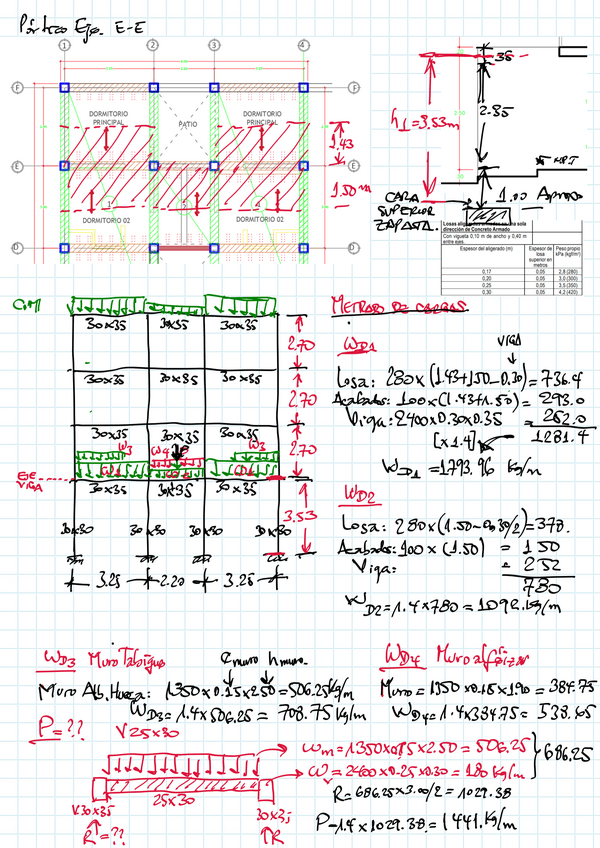 Pórtico Eje. E-E
1 2 3 4
F F
DORMITORIO
PRINCIPAL
PATIO
DORMITORIO
PRINCIPAL
1.43
E E
1.50m
DORMITORIO 02
DORMITORIO 02
D D
.35
h1=3.53m
2.85
N.P.T
1.00 Aprox
CARA
SUPERIOR
ZAPATA.
Losas aligeradas armadas en una sola
dirección de Concreto Armado
Con vigueta 0,10 m de ancho y 0,40 m
entre ejes.
Espesor del aligerado (m) Espesor de losa superior en metros Peso propio kPa (kgf/m²)
0,17 0,05 2,8 (280)
0,20 0,05 3,0 (300)
0,25 0,05 3,5 (350)
0,30 0,05 4,2 (420)
C.M
30x35 30x35 30x35
2.70
30x35 30x35 30x35
2.70
30x35 30x35 30x35
W3 W4 P W3
2.70
EJE
VIGA
30x35 30x35 30x35
3.53
30x30 30x30 30x30 30x30
3.25 2.20 3.25
METRADO DE CARGAS
WD1
VIGA
Losa: 280x(1.43+1.50-0.30)=736.4
Acabados: 100x(1.43+1.50)= 293.0
Viga: 2400x0.30x0.35 = 252.0
[x1.4] 1281.4
WD1 =1793.96 kg/m
WD2
Losa: 280x(1.50-0.30/2)=378.
Acabados: 100x(1.50) = 150
Viga: = 252
780
WD2=1.4x780=1092.kg/m
WD3 Muro Tabique emuro hmuro.
Muro Alb. Hueca: 1350x0.15x2.50=506.25kg/m
WD3=1.4x506.25= 708.75 kg/m
WD4 Muro alfeizer
Muro=1350x0.15x1.90=384.75
WD4=1.4x384.75= 538.65
P=??
V25x30
wm=1350x0.15x2.50=506.25
wv=2400x0.25x0.30=180 kg/m
686.25
25x30
V30x35
30x35
R=??
R
R=686.25x3.00/2=1029.38
P=1.4x1029.38=1441.kg/m